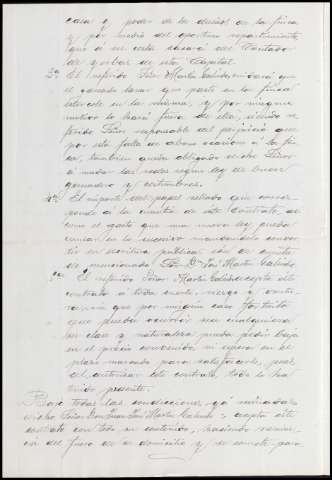 casa y poder de la dueña de la finca
y por medio del oportuno repartimiento
que á su costa sacará del Contador
de yerbas de esta Capital.
3ª El referido Señor Martin Galindo, cuidará que
el ganado lanar que paste en la finca
intercale en la misma, y por ninguno
motivo lo hará fuera de ella, siendo re-
ferido Señor responsable del perjuicio que
por esta falta de abono ocasione á la fin-
ca, tambien queda obligado dicho Señor
á mudar las redes segun ley de buen
ganadero y costumbres.
4ª El importe del papel sellado que corres-
ponde á la cuantia de este Contrato, asi
como el gasto que una nueva ley pueda
causar en lo sucesivo mandandolo conver-
tir en escritura publica son de cuenta
de mencionado Sor. Dn. José Martin Galindo
5ª El referido Señor Martin Galindo acepta este
contrato á toda suerte, riesgo y contin-
gencia que por ningun caso fortuito
que pueda ocurrir sea cualquiera
su clase y naturaleza pueda pedir baja
en el precio convenido ni espera en el
plazo marcado para satisfacerlo, pues
al autorizar este contrato, todo lo ha
tenido presente.
Bajo todas las condiciones ya reiteradas
dicho Señor Don José Martin Galindo, acepta este
contrato con todo su contenido, haciendo renun-
cia del fuero de su domicilio y se somete para